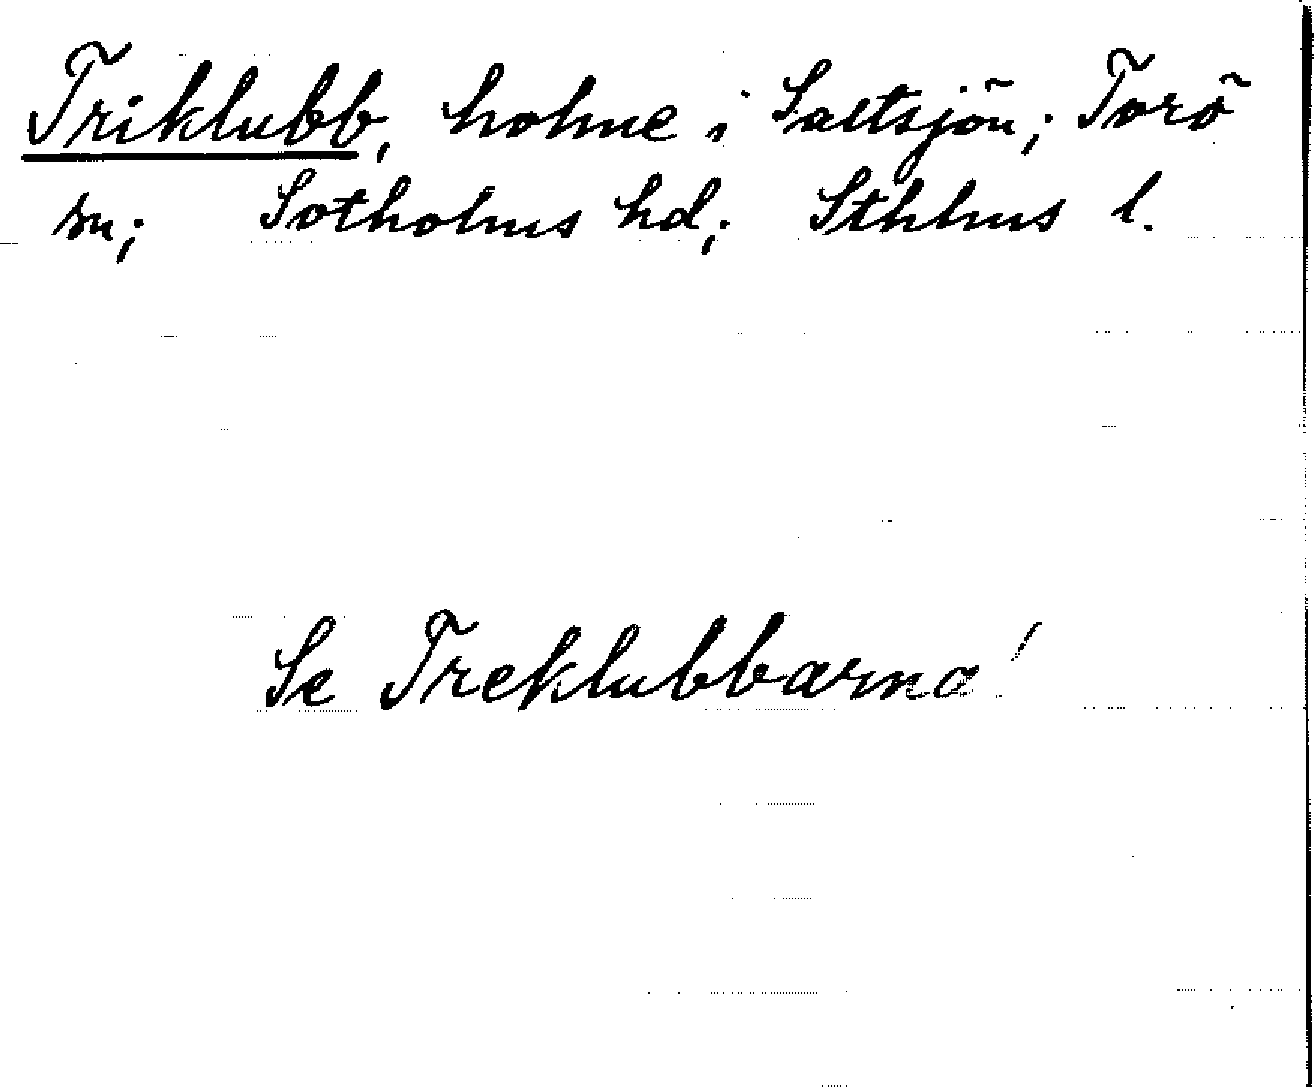 Triklubb, holme i Saltsjön; Torö
sn; Sotholms hd; Sthlms l.
Se Treklubbarna!